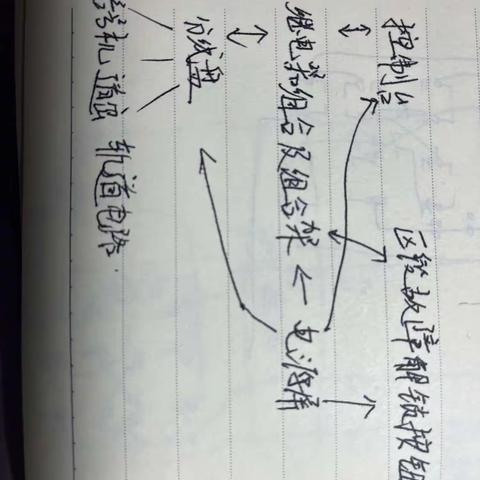 控制台 区段故障解锁按钮
↕
继电器组合及组合架 ← 电源屏 →
↕
分线盘
信号机 道岔 轨道电路.